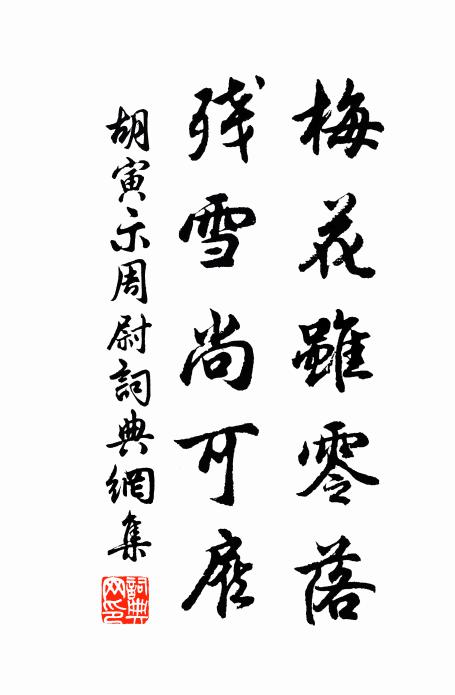 梅花雖零落
殘雪尚可
胡寅示周尉詞典網集
詞典
网印